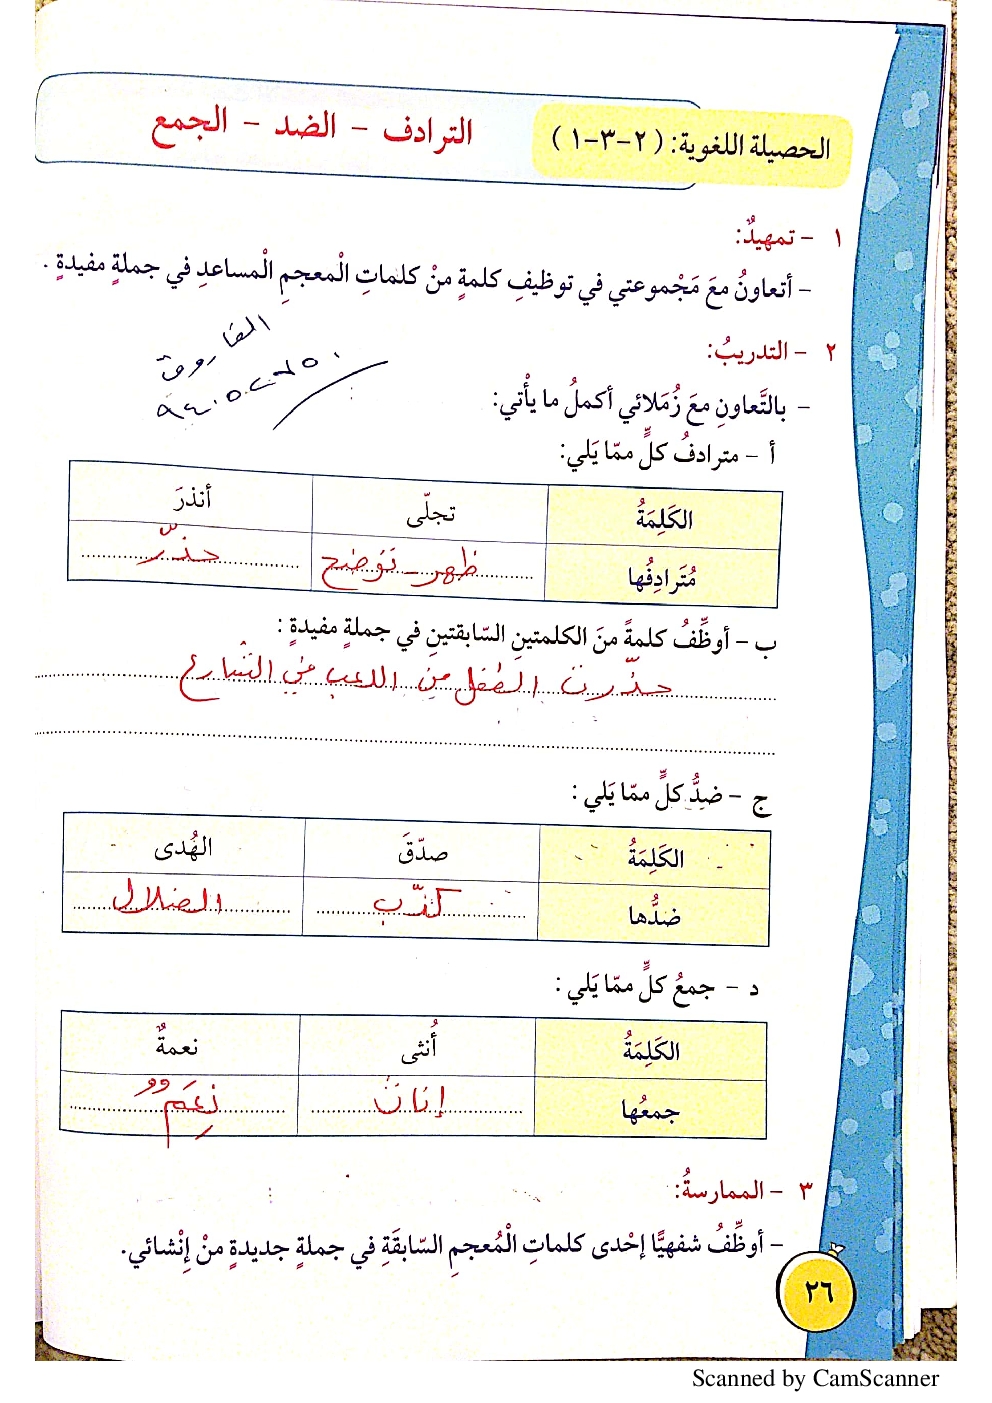 الحصيلة اللغوية: (٢-٣-١) الترادف - الضد - الجمع
١ - تمهيدٌ:
- أتعاونُ معَ مَجْموعتي في توظيفِ كلمةٍ منْ كلماتِ الْمعجمِ الْمساعدِ في جملةٍ مفيدةٍ.
الفاروق
٢ - التدريبُ:
- بالتَّعاونِ معَ زُمَلائي أكملُ ما يأْتي:
أ - مترادفُ كلٍّ ممّا يَلي:
الكَلِمَةُ تجلّى أنذرَ
مُتَرادِفُها ظهر - توضح حذّر
ب - أوظِّفُ كلمةً منَ الكلمتينِ السّابقتينِ في جملةٍ مفيدةٍ:
حذّرت الطفل من اللعب في الشارع
ج - ضدُّ كلٍّ ممّا يَلي:
الكَلِمَةُ صدّقَ الهُدى
ضدُّها كذّب الضلال
د - جمعُ كلٍّ ممّا يَلي:
الكَلِمَةُ أُنثى نعمةٌ
جمعُها إناث نِعَم
٣ - الممارسةُ:
- أوظِّفُ شفهيًّا إحْدى كلماتِ الْمُعجمِ السّابقَةِ في جملةٍ جديدةٍ منْ إنْشائي.
٢٦
Scanned by CamScanner